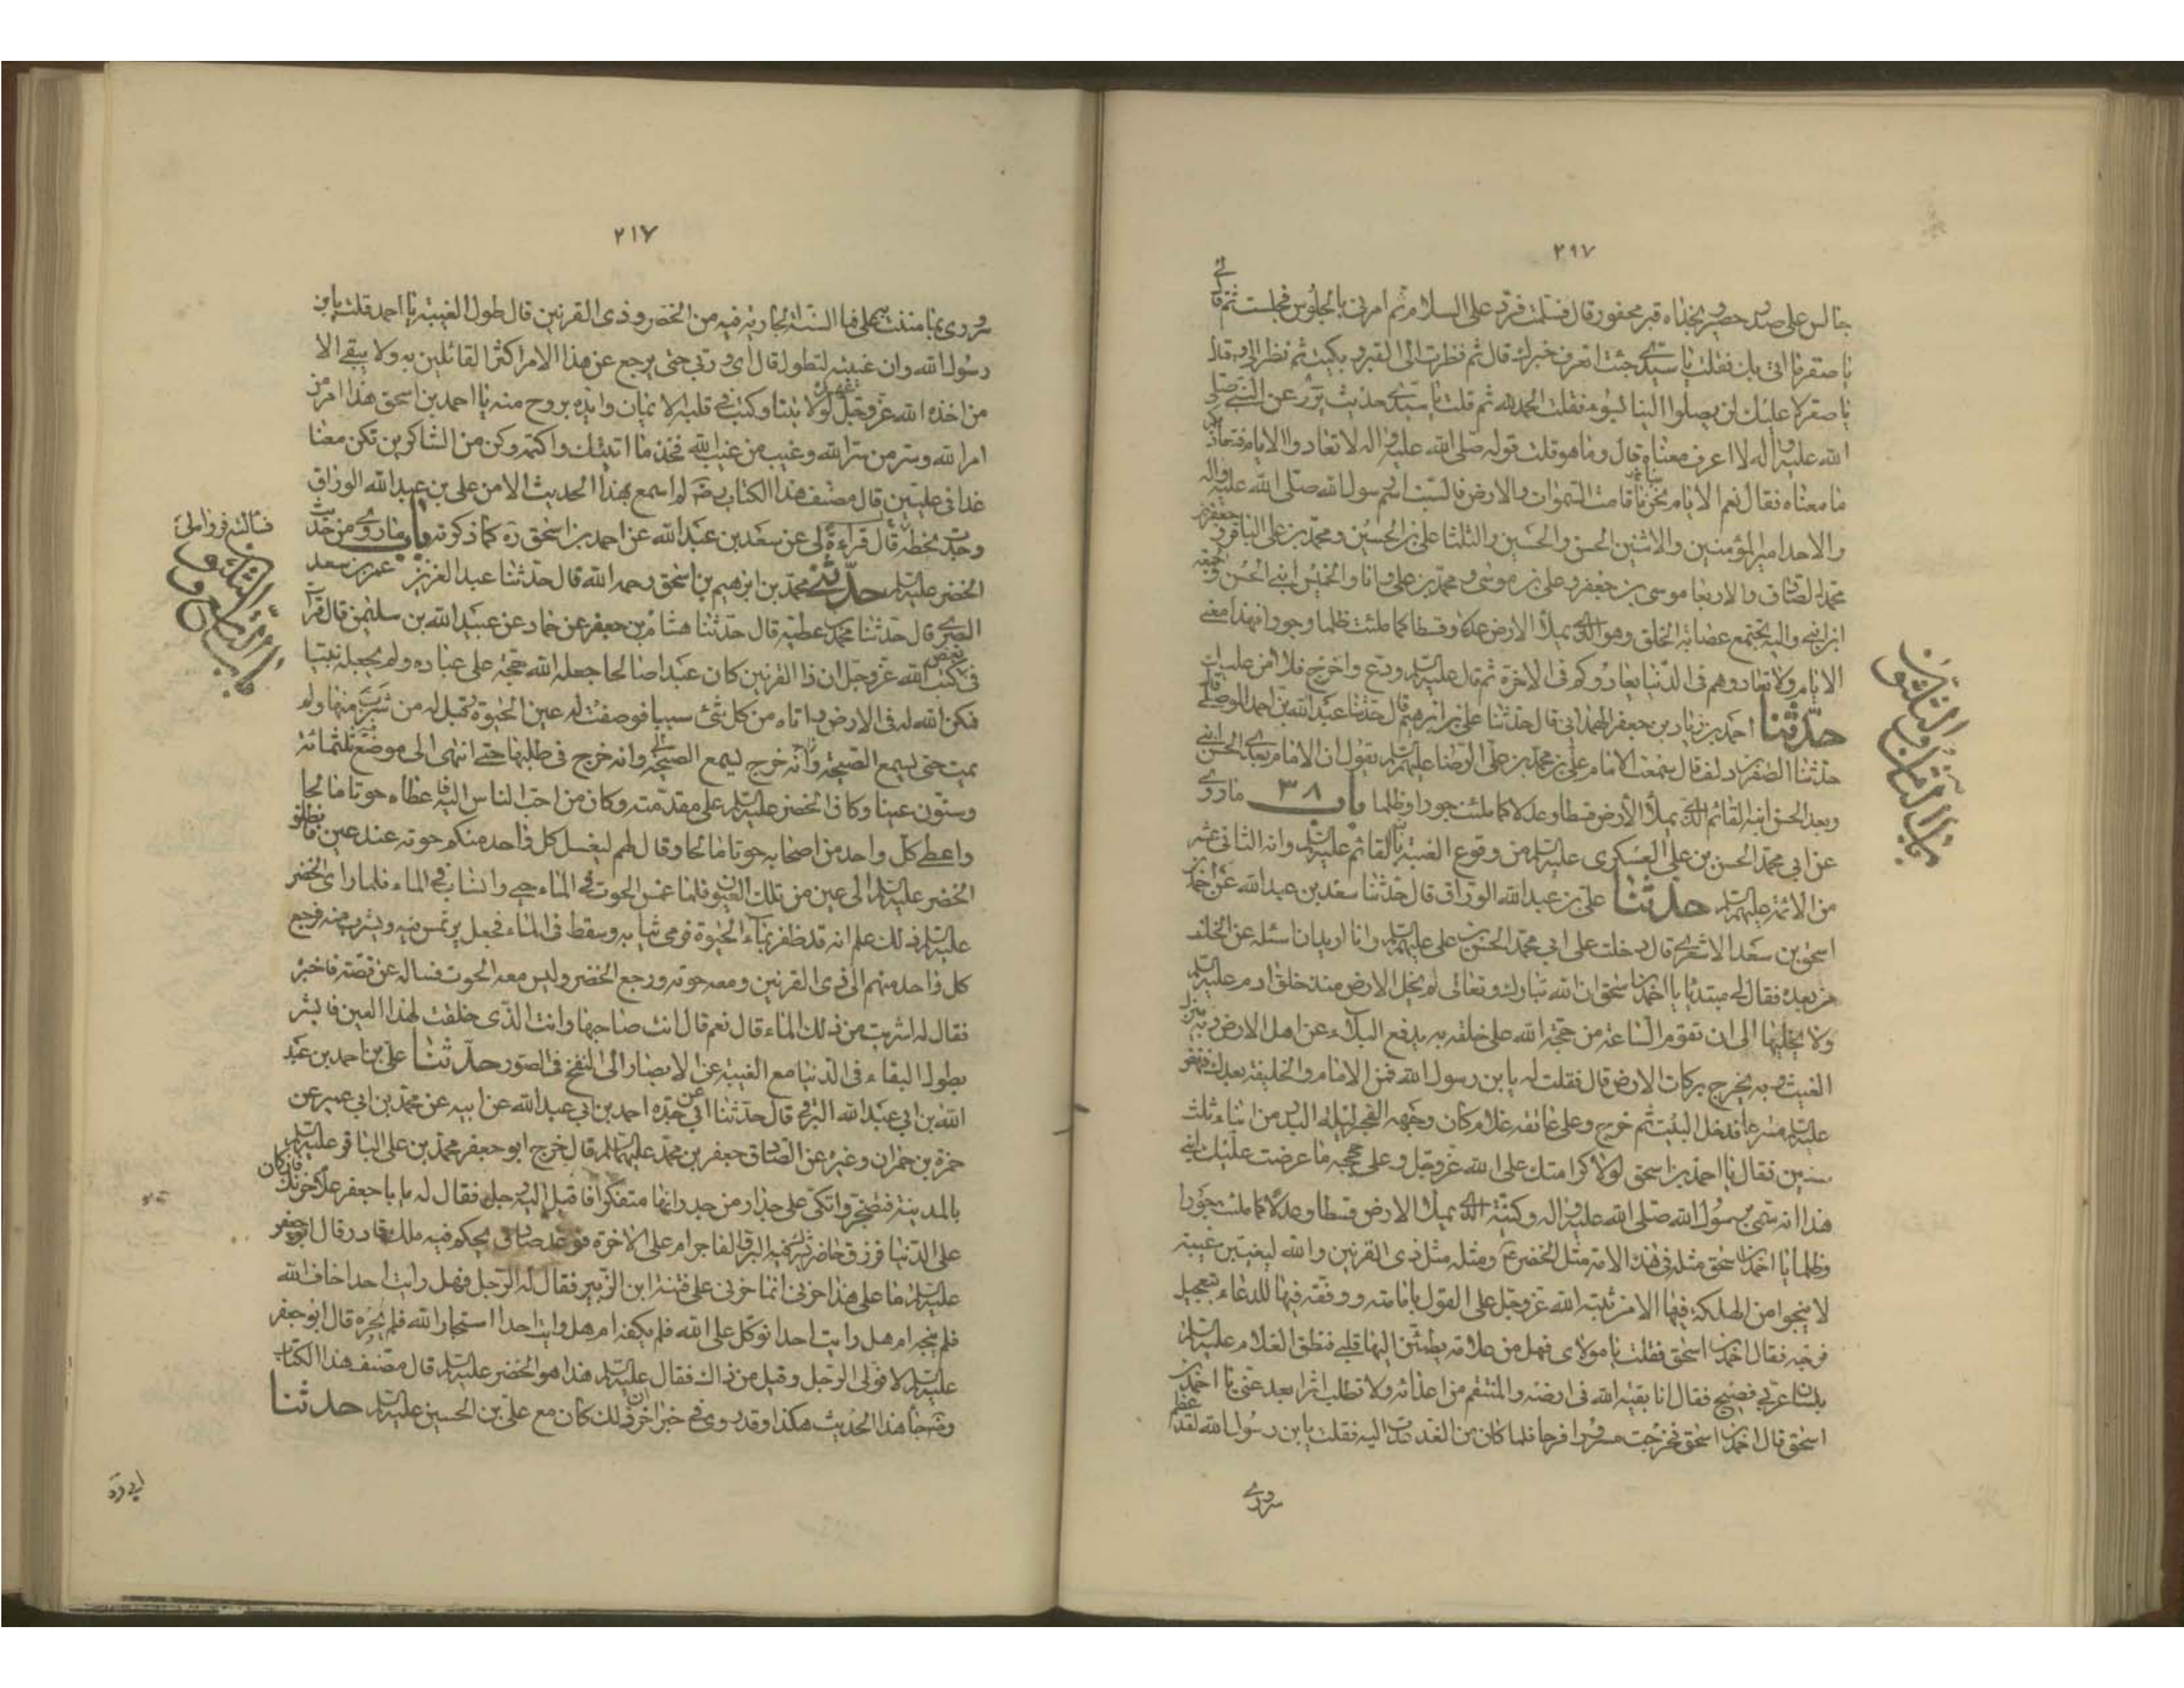 ٢٩٧
جالس على صدر حصير وبحذاه قبر محفور قال فسلمت فرد على السلام ثم امرنى بالجلوس فجلست ثم قال لى
يا صقر ما اتى بك فقلت يا سيدى جئت اتعرف خبرك قال ثم نظرت الى القبر وبكيت ثم نظر الى وقال
يا صقر لا عليك لن يصلوا الينا بسوء فقلت الحمد لله ثم قلت يا سيدى حديث يروى عن النبى صلى
الله عليه واله لا اعرف معناه قال وما هو قلت قوله صلى الله عليه واله لا تعادوا الايام فتعاديكم
ما معناه فقال نعم الايام نحن ما قامت السموات والارض فالسبت اسم رسول الله صلى الله عليه واله
والاحد امير المؤمنين والاثنين الحسن والحسين والثلثا على بن الحسين ومحمد بن على الباقر وجعفر بن
محمد الصادق والاربعا موسى بن جعفر وعلى بن موسى ومحمد بن على وانا والخميس ابنى الحسن والجمعة
ابن ابنى واليه يجتمع عصابة الخلق وهو الذى يملأ الارض عدلا وقسطا كما ملئت ظلما وجورا فهذا معنى
الايام ولا تعادوهم فى الدنيا يعادوكم فى الاخرة ثم قال عليه السلم ودع واخرج فلا امن عليك
حدثنا احمد بن زياد بن جعفر الهمدانى قال حدثنا على بن ابرهيم قال حدثنا عبد الله بن احمد الموصلى قال
حدثنا الصقر بن دلف قال سمعت الامام على بن محمد بن على الرضا عليهم السلم يقول ان الامام بعدى الحسن ابنى
وبعد الحسن ابنه القائم الذى يملأ الأرض قسطا وعدلا كما ملئت جورا وظلما باب ٣٨ ما روى
عن ابى محمد الحسن بن على العسكرى عليه السلم من وقوع الغيبة بالقائم عليه السلم وانه الثانى عشر
من الائمة عليهم السلم حدثنا على بن عبد الله الوراق قال حدثنا سعد بن عبد الله عن احمد بن
اسحق بن سعد الاشعرى قال دخلت على ابى محمد الحسن بن على عليهما السلم وانا اريد ان اسئله عن الخلف
من بعده فقال لى مبتديا يا احمد بن اسحق ان الله تبارك وتعالى لم يخل الارض منذ خلق ادم عليه السلم
ولا يخليها الى ان تقوم الساعة من حجة الله على خلقه به يدفع البلاء عن اهل الارض وبه ينزل
الغيث وبه يخرج بركات الارض قال فقلت له يا بن رسول الله فمن الامام والخليفة بعدك فنهض
عليه السلم مسرعا فدخل البيت ثم خرج وعلى عاتقه غلام كان وجهه القمر ليلة البدر من ابناء ثلث
سنين فقال يا احمد بن اسحق لولا كرامتك على الله عز وجل وعلى حججه ما عرضت عليك ابنى
هذا انه سمى رسول الله صلى الله عليه واله وكنيه الذى يملأ الارض قسطا وعدلا كما ملئت جورا
وظلما يا احمد بن اسحق مثله فى هذه الامة مثل الخضر ع ومثله مثل ذى القرنين والله ليغيبن غيبة
لا ينجو من الهلكة فيها الا من ثبته الله عز وجل على القول بامامته ووفقه فيها للدعاء بتعجيل
فرجه فقال احمد بن اسحق فقلت يا مولاى فهل من علامة يطمئن اليها قلبى فنطق الغلام عليه السلم
بلسان عربى فصيح فقال انا بقية الله فى ارضه والمنتقم من اعدائه ولا تطلب اثرا بعد عين يا احمد بن
اسحق قال احمد بن اسحق فخرجت مسرورا فرحا فلما كان من الغد عدت اليه فقلت يا بن رسول الله لقد عظم
سرورى
باب الثامن والثلثون
٢١٧
سرورى بما مننت به على فما السنة الجارية فيه من الخضر وذى القرنين قال طول الغيبة يا احمد قلت يا بن
رسول الله وان غيبته لتطول قال اى وربى حتى يرجع عن هذا الامر اكثر القائلين به ولا يبقى الا
من اخذ الله عز وجل عهده لولايتنا وكتب فى قلبه الايمان وايده بروح منه يا احمد بن اسحق هذا امر من
امر الله وسر من سر الله وغيب من غيب الله فخذ ما اتيتك واكتمه وكن من الشاكرين تكن معنا
غدا فى عليين قال مصنف هذا الكتاب رضه لم اسمع بهذا الحديث الا من على بن عبد الله الوراق
وجدت بخطه قال قراءة لى عن سعد بن عبد الله عن احمد بن اسحق ره كما ذكرته باب ما روى من حديث
الخضر عليه السلم حدثنى محمد بن ابرهيم بن اسحق رحمه الله قال حدثنا عبد العزيز عمر بن سعد
البصرى قال حدثنا محمد بن عطية قال حدثنا هشام بن جعفر عن حماد عن عبد الله بن سليمن قال قرات
فى بعض كتب الله عز وجل ان ذا القرنين كان عبدا صالحا جعله الله حجة على عباده ولم يجعله نبيا
فمكن الله له فى الارض واتاه من كل شئ سببا فوصفت له عين الحيوة وقيل له من شرب منها ولم
يمت حتى يسمع الصيحة وانه خرج فى طلبها حتى انتهى الى موضع ثلثمائة
وستون عينا وكان الخضر عليه السلم على مقدمته وكان من احب الناس اليه فاعطاه حوتا مالحا
واعطى كل واحد من اصحابه حوتا مالحا وقال لهم ليغسل كل واحد منكم حوته عند عين فانطلق
الخضر عليه السلم الى عين من تلك العيون فلما غمس الحوت فى الماء حيى وانساب فى الماء فلما راى الخضر
عليه السلم ذلك علم انه قد ظفر بماء الحيوة فرمى ثيابه وسقط فى الماء فجعل يرتمس فيه ويشرب منه فرجع
كل واحد منهم الى ذى القرنين ومعه حوته ورجع الخضر وليس معه الحوت فساله عن قصته فاخبره
فقال له اشربت من ذلك الماء قال نعم قال انت صاحبها وانت الذى خلقت لهذا العين فابشر
بطول البقاء فى الدنيا مع الغيبة عن الابصار الى النفخ فى الصور حدثنا على بن احمد بن عبد
الله بن ابى عبد الله البرقى قال حدثنا ابى عن جده احمد بن ابى عبد الله عن ابيه عن محمد بن ابى عمير عن
حمزة بن حمران وغيره عن الصادق جعفر بن محمد عليهما السلم قال خرج ابو جعفر محمد بن على الباقر عليه السلم
بالمدينة فتضجر واتكئ على جدار من جدرانها متفكرا فاقبل اليه رجل فقال له يا با جعفر علام حزنك
على الدنيا فرزق حاضر يشترك فيه البر والفاجر ام على الاخرة فوعد صادق يحكم فيه ملك قادر قال ابو جعفر
عليه السلم ما على هذا حزنى انما حزنى على فتنة ابن الزبير فقال له الرجل فهل رايت احدا خاف الله
فلم ينجه ام هل رايت احدا توكل على الله فلم يكفه ام هل رايت احدا استجار الله فلم يجره قال ابو جعفر
عليه السلم لا فولى الرجل وقيل من ذاك فقال عليه السلم هذا هو الخضر عليه السلم قال مصنف هذا الكتاب
وقد جاء هذا الحديث هكذا وقد روى فى خبر اخر ان ذلك كان مع على بن الحسين عليه السلم حدثنا
باب التاسع والثلثون